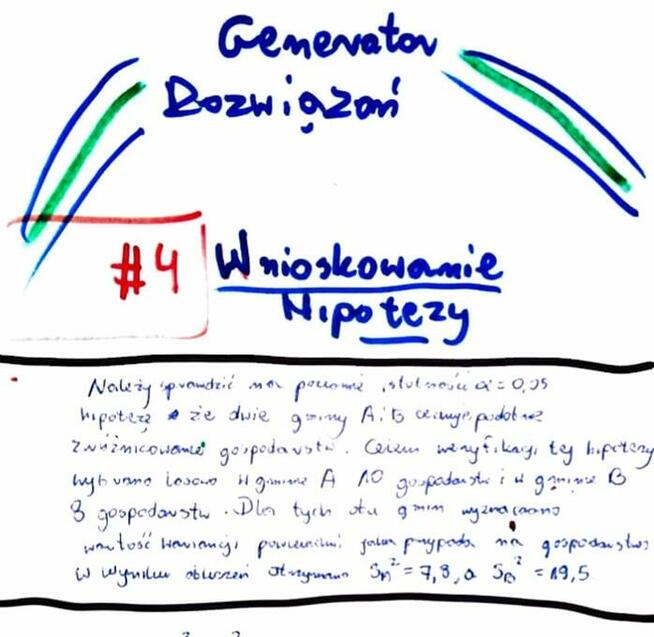 Generator
Rozwiązań
#4 Wnioskowanie
Hipotezy
Należy sprawdzić na poziomie istotności α = 0,05
hipotezę że dwie gminy A i B cechuje podobne
zróżnicowanie gospodarstw. Celem weryfikacji tej hipotezy
wybrano losowo w gminie A 10 gospodarstw i w gminie B
8 gospodarstw. Dla tych obu gmin wyznaczono
wartość wariancji powierzchni jaka przypada na gospodarstwo
W wyniku obliczeń otrzymano S_A² = 7,8, a S_B² = 19,5